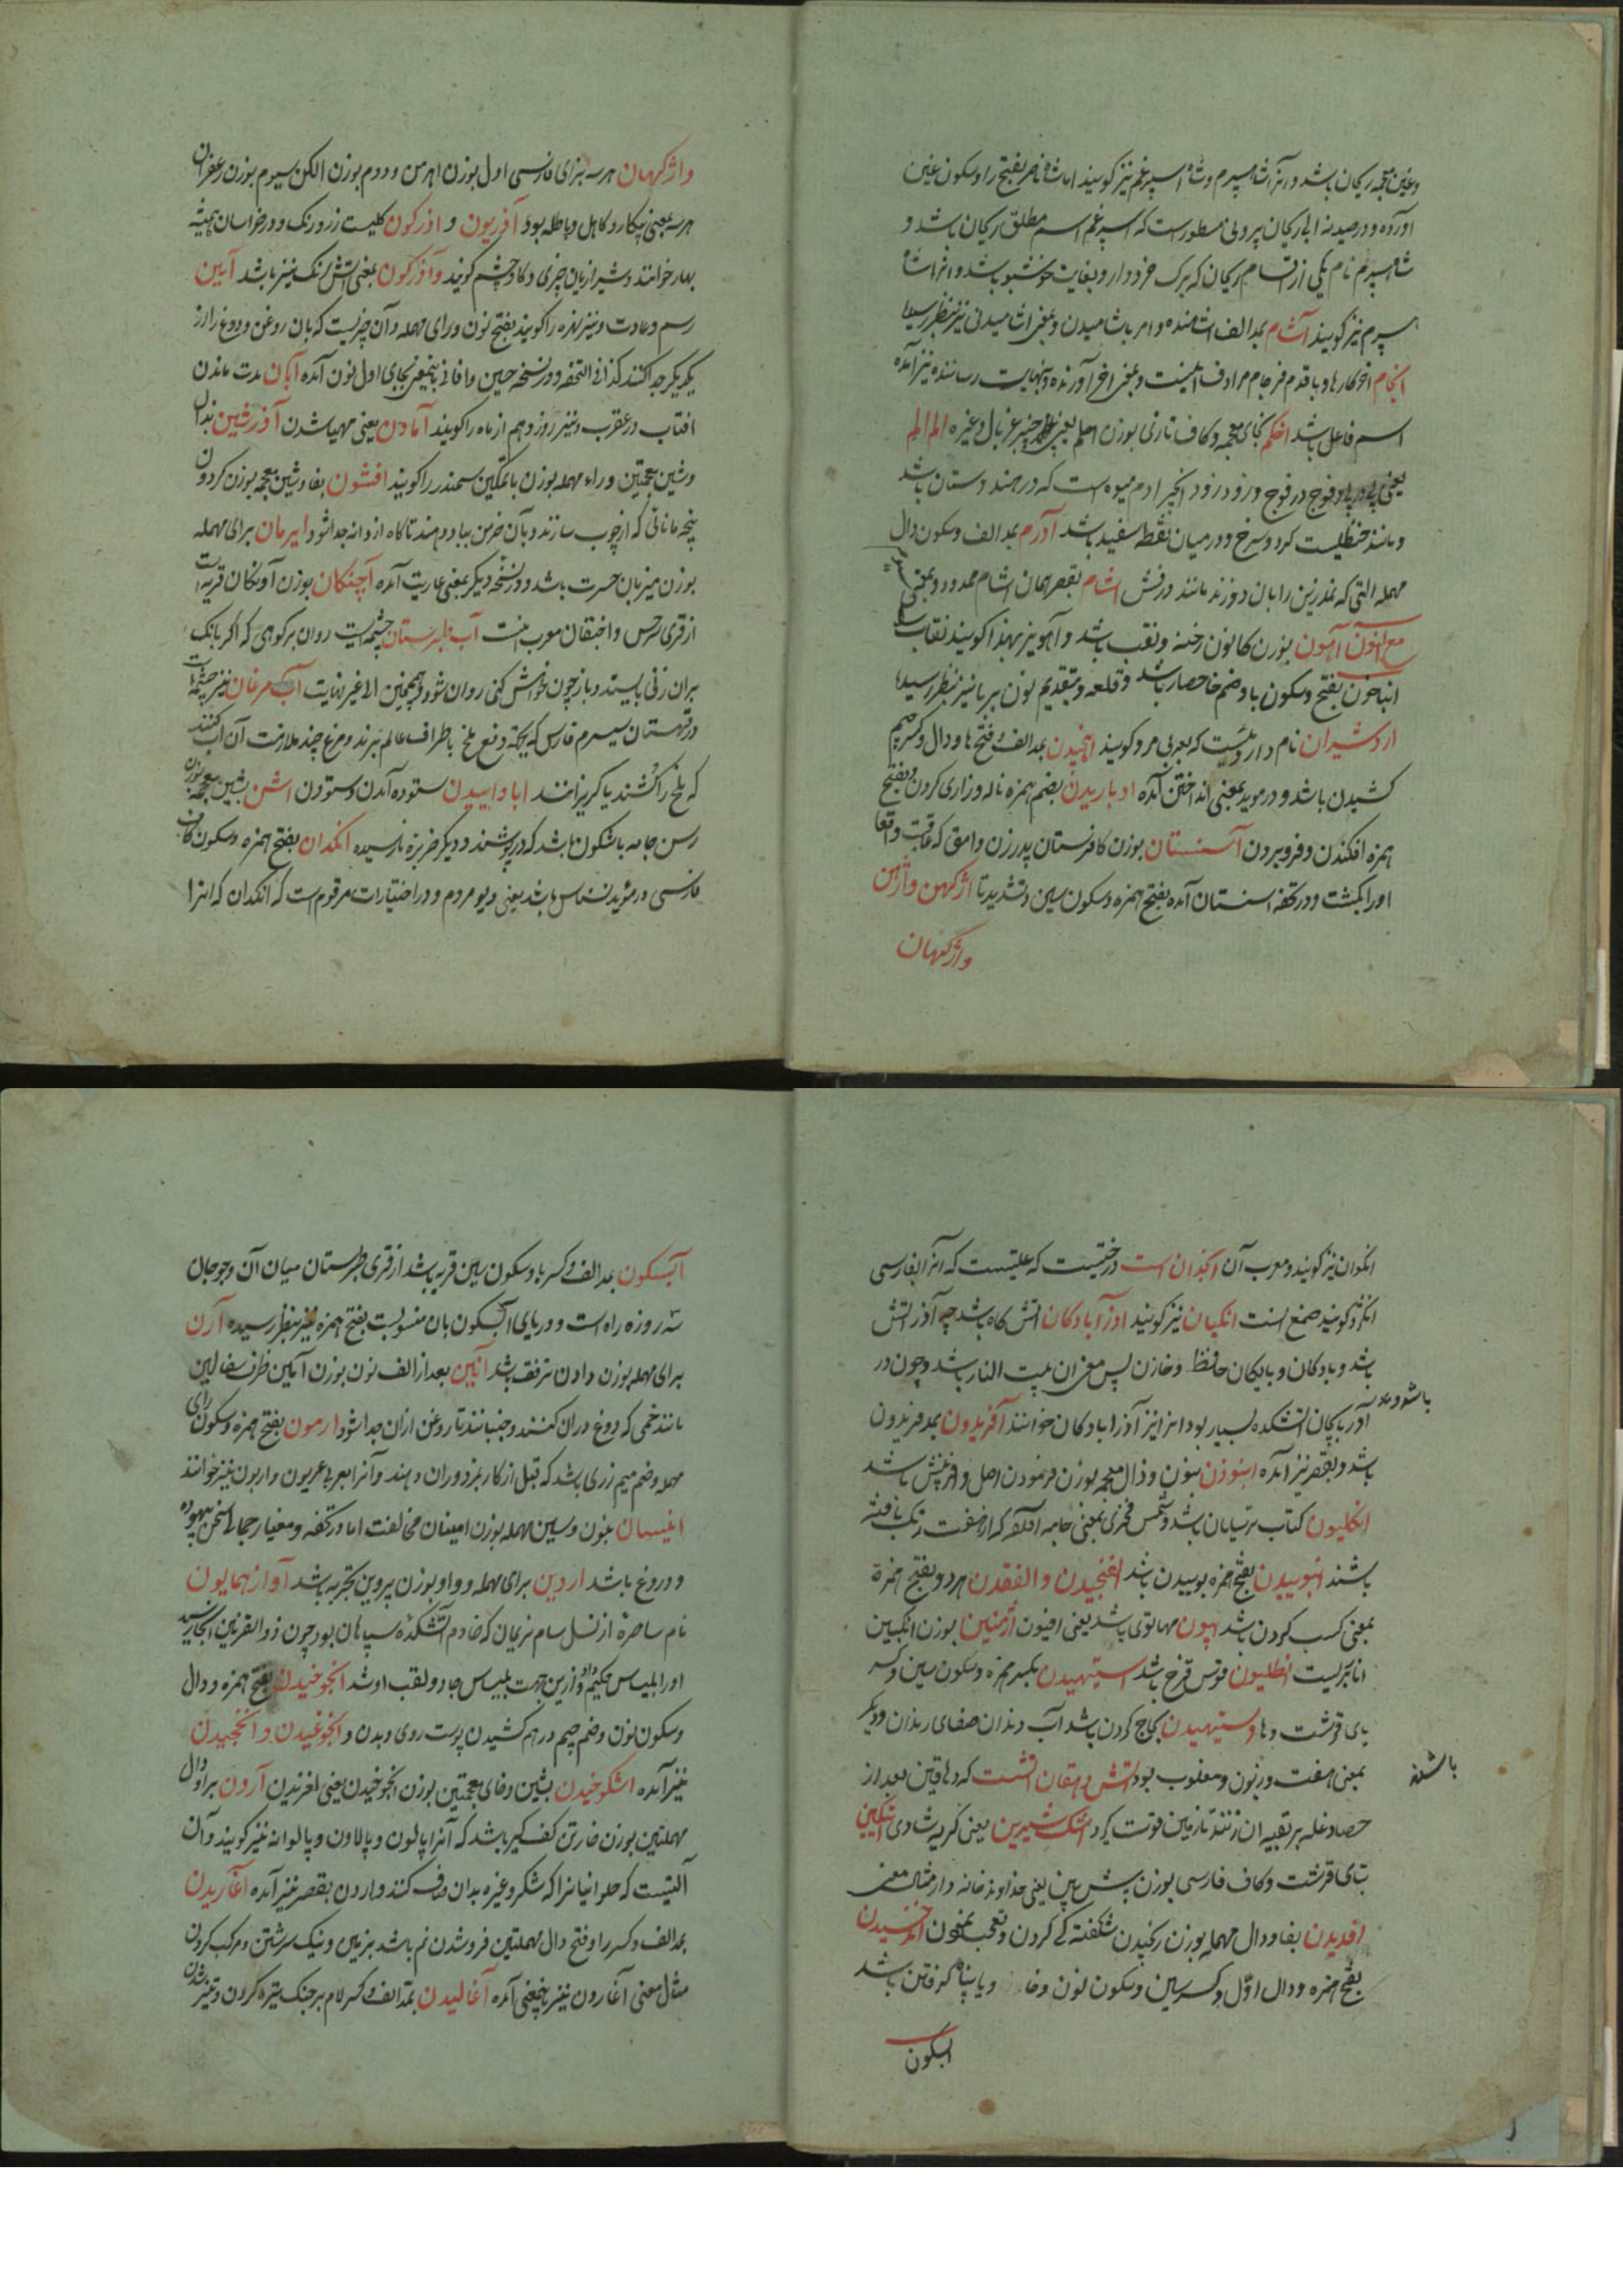 وغین معجمه ریحان باشد و انرا شاه سپرم و شاه اسپرغم نیز گویند اما شاه ناصر بفتح را و سکون غین
آورده و در صیدنه ابی ریحان بیرونی مسطور است که اسپرغم اسم مطلق ریحان باشد و
شاه سپرم نام یکی از اقسام ریحان که برک خرد دارد و بغایت خوشبو باشد و انرا شاه
سپرم نیز گویند آشام بمد الف اشامنده و امر باشامیدن و بمعنی اشامیدنی نیز بنظر رسید
انجام اخر کارها و با قدوم فرجام مرادف اینست و بمعنی اخر آورنده و بنهایت رساننده نیز آمده
اسم فاعل باشد اخکم بخای معجمه و کاف تازی بوزن اعلم یعنی چنبر غربال و غیره الم الم
یعنی پی در پی و فوج در فوج و زود زود انجیر ادم میوه است که در هندوستان باشد
و مانند حنظلیست کرد و سرخ و در میان نقطه سفید باشد آدرم بمد الف و سکون دال
مهمله التی که نمدزین را بان دوزند مانند درفش اشام بقصر همان اشام ممدود و بمعنی
مع النون آهون بوزن کانون رخنه و نقب باشد و آهو نیز بهذا گویند نقاب
انباخون بفتح و سکون با و ضم خا حصار باشد و قلعه و بتقدیم نون بر با نیز بنظر رسید
اردشیران نام داروئیست که بعربی مرو گویند اهنجیدن بمد الف و فتح ها و دال و کسر جیم
کشیدن باشد و در موید بمعنی انداختن آمده اوباریدن بضم همزه ناله و زاری کردن و بفتح
همزه افکندن و فرو بردن آسنستان بوزن کافرستان پدر زن وامق که عاقبت وامق
اورا بکشت و در تحفه اسنستان آمده بفتح همزه و سکون سین و تشدید تا اژکهن و اژهن
واژکهان
واژکهان هرسه بزای فارسی اول بوزن اهرمن و دوم بوزن الکن سیوم بوزن زعفران
هرسه بمعنی بیکار و کاهل و باطله بود آذریون و اذرکون کلیست زرد رنک و در خراسان همیشه
بهار خوانند و شیرازیان خیری و کاوچشم گویند و آذرکون بمعنی اتش رنک نیز باشد آیین
رسم و عادت و نیز نهره را گویند بفتح نون و رای مهمله و آن چیزیست که بان روغن و دوغ را از
یکدیگر جدا کنند کذا فی التحفه و در نسخه حسین وفائی باینمعنی بجای اول نون آمده آبان مدت ماندن
افتاب در عقرب و نیز روز دهم از ماه را گویند آمادن یعنی مهیا شدن آذرشین بذال
و شین معجمتین و راء مهمله بوزن باتمکین سمندر را گویند افشون بفا و شین معجمه بوزن کردون
پنجه مانندی که از چوب سازند و بآن خرمن بباد دهند تا کاه از دانه جدا شود ایرمان برای مهمله
بوزن میزبان حسرت باشد و در نسخه دیگر بمعنی عاریت آمده آچنکان بوزن آونکان قریه است
از قری سرخس و اخنقان معرب اینست آب طبرستان چشمه ایست روان بر کوهی که اگر بانک
بران زنی بایستد و باز چون خواهش کنی روان شود و همچنین الا غیر نهایت آب مرغان نیز چشمه ایست
در قهستان سیمیرم فارس که بجهة دفع ملخ باطراف عالم برند و مرغ چند ملازمت آن اب کنند
که ملخ را کشند یا گریزانند اباواییدن ستوده آمدن و ستودن اشن بشین معجمه بوزن
رسن جامه باشکون باشد که درپوشند و دیگر خربزه نارسیده انکدان بفتح همزه و سکون کاف
فارسی در موید نسناس باشد یعنی دیو مردم و در اختیارات مرقوم است که انکدان که انرا
انکوان نیز گویند و معرب آن انجذان است درختیست که حلتیت که آنرا بفارسی
انکزد گویند صمغ انست انکیان نیز گویند اوزآبادکان اتش کاه باشد چه آذر اتش
باشد و بادکان و بایکان حافظ و خازن پس معنی ان بیت النار باشد و چون در
آذربایجان اتشکده بسیار بود انرا نیز آذرابادکان خوانند آفریدون بمد فریدون
باشد و بقصر نیز آمده ابنوذن بنون و ذال معجمه بوزن فرمودن اصل و افرینش باشد
انکلیون کتاب ترسایان باشد و شمس فخری بمعنی جامه افکند که از هفت رنک بافته
باشند انبوییدن بفتح همزه بوییدن باشد الفنجیدن و الفقدن هر دو بفتح همزه
بمعنی کسب کردن باشد اپیون مهاتوی باشد یعنی افیون ارمنین بوزن انکبین
انار بریست انطلیون قوس قزح باشد استیهیدن بکسر همزه و سکون سین و کسر
تای قرشت و ها و ستیهیدن لجاج کردن باشد آب دندان صفای دندان و دیگر
بمعنی هفت و زبون و مغلوب بود اتش دهقان اتشست که دهاقین بعد از
حصاد غله بر بقیه ان زنند تا زمین قوت گیرد اشک شیرین یعنی گریه شادی اتکین
بتای قرشت و کاف فارسی بوزن پیش بین یعنی خداوند خانه و ارمشان معنی
افدیدن بفا و دال مهمله بوزن رنجیدن شکفته کی کردن و تعجب نمودن اندخسیدن
بفتح همزه و دال اول و کسر سین و سکون نون و خا و با پناه گرفتن باشد
ابسکون
آبسکون بمد الف و کسر با و سکون سین قریه باشد از قری طبرستان میان آن و جرجان
سه روزه راه است و دریای ابسکون بان منسوبست بفتح همزه نیز بنظر رسیده آرن
برای مهمله بوزن دادن مرفق باشد آنین بعد از الف نون بوزن آیین ظرف سفالین
مانند خمی که دوغ دران کنند و جنبانند تا روغن ازان جدا شود ارمون بفتح همزه و سکون رای
مهمله و ضم میم زری باشد که قبل از کار بمزدوران دهند و آنرا بعربی عربون و اربون نیز خوانند
انیسان بنون و سین مهمله بوزن امینان مخالفت اما در تحفه و معیار جمالی سخن بیهوده
و دروغ باشد اردین برای مهمله و واو بوزن پروین تجربه باشد آوازهمایون
نام ساحره از نسل سام نریمان که خادم اتشکده سپاهان بود چون ذو القرنین انجا رسید
اورا بلیناس حکیم داد و ازین جهت بلیناس جادو لقب اوشد انجوخیدن بفتح همزه و دال
و سکون نون و ضم جیم درهم کشیدن پوست روی و بدن و انجوغیدن و انجخیدن
نیز آمده اشکوخیدن بشین و خای معجمتین بوزن انجوخیدن یعنی لغزیدن آردن برا و دال
مهملتین بوزن خارتن کفکیر باشد که آنرا پالون و پالاون و پالوانه نیز گویند و آن
آلتیست که حلوائیانرا که شکر و غیره بدان صاف کنند و اردن بقصر نیز آمده آغاریدن
بمد الف و کسر را و فتح دال مهملتین فرو شدن نم باشد بزمین و نیک سرشتن و مرکب کردن
مثال معنی آغاردن نیز باینمعنی آمده آغالیدن بمد الف و کسر لام بر جنک تیز کردن و تیز شدن